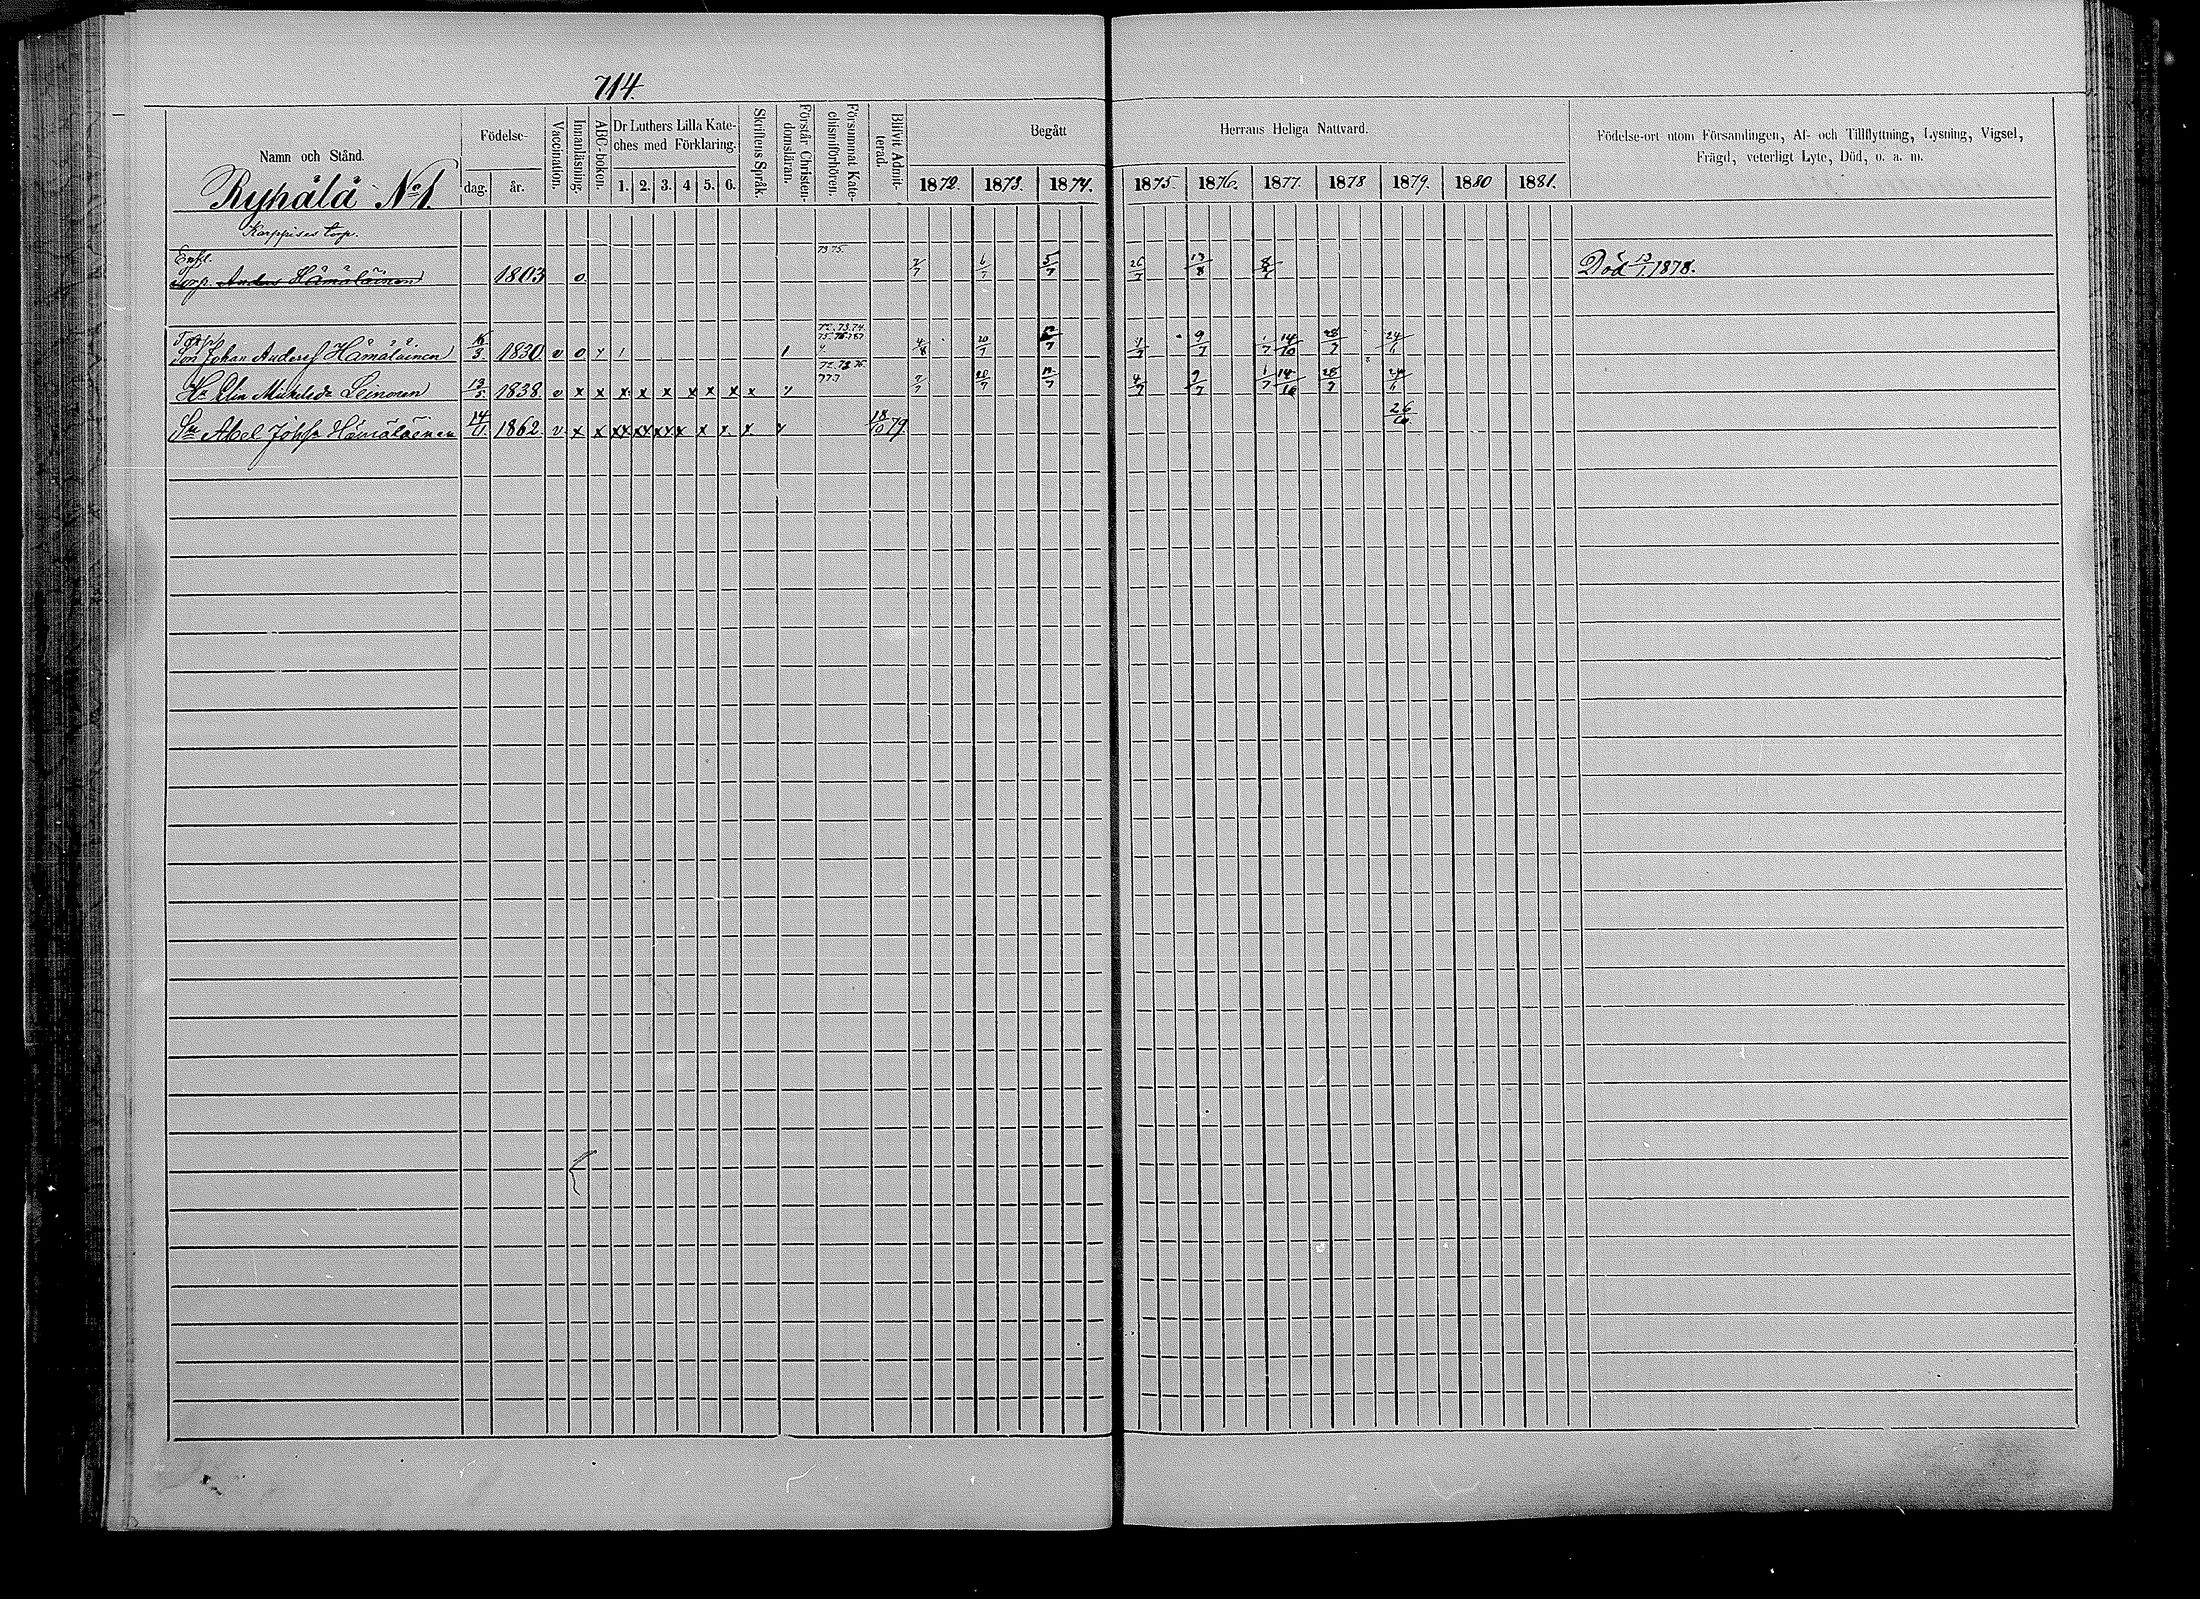 714.
Namn och Stånd.
Födelse-
dag. år.
Vaccination.
Innanläsning.
ABC-boken.
Dr Luthers Lilla Kate-
ches med Förklaring.
1. 2. 3. 4 5. 6.
Skriftens Språk.
Förstår Christen-
domsläran.
Försummat Kate-
chismiförhören.
Blifvit Admit-
terad.
Begått
Herrans Heliga Nattvard.
1872. 1873. 1874. 1875. 1876. 1877. 1878 1879. 1880 1881.
Födelse-ort utom Församlingen, Af- och Tillflyttning, Lysning, Vigsel,
Frägd, veterligt Lyte, Död, o. a. m.
Ryhälä No 1.
Karppises torp.
Enkl.
Torp. Anders Hämäläinen 1803 o 73 75. 2/7 6/7 5/7 26/7 13/8 8/7 Död 13/1 1878.
Torp.
Son Johan Anderss Hämäläinen 6/3 1830 v o 72. 73. 74. 4/8 20/7 4/7 9/7 1/7 14/10 28/7 24/6
Hu Elin Mickelsdr Leinonen 13/5 1838 v x x x x x x x x x 7/7 20/7 4/7 9/7 1/7 14/10 28/7 24/6
Son Abel Johss Hämäläinen 14/1 1862. v x x xx xx xx x x x x 18/10 79 26/10